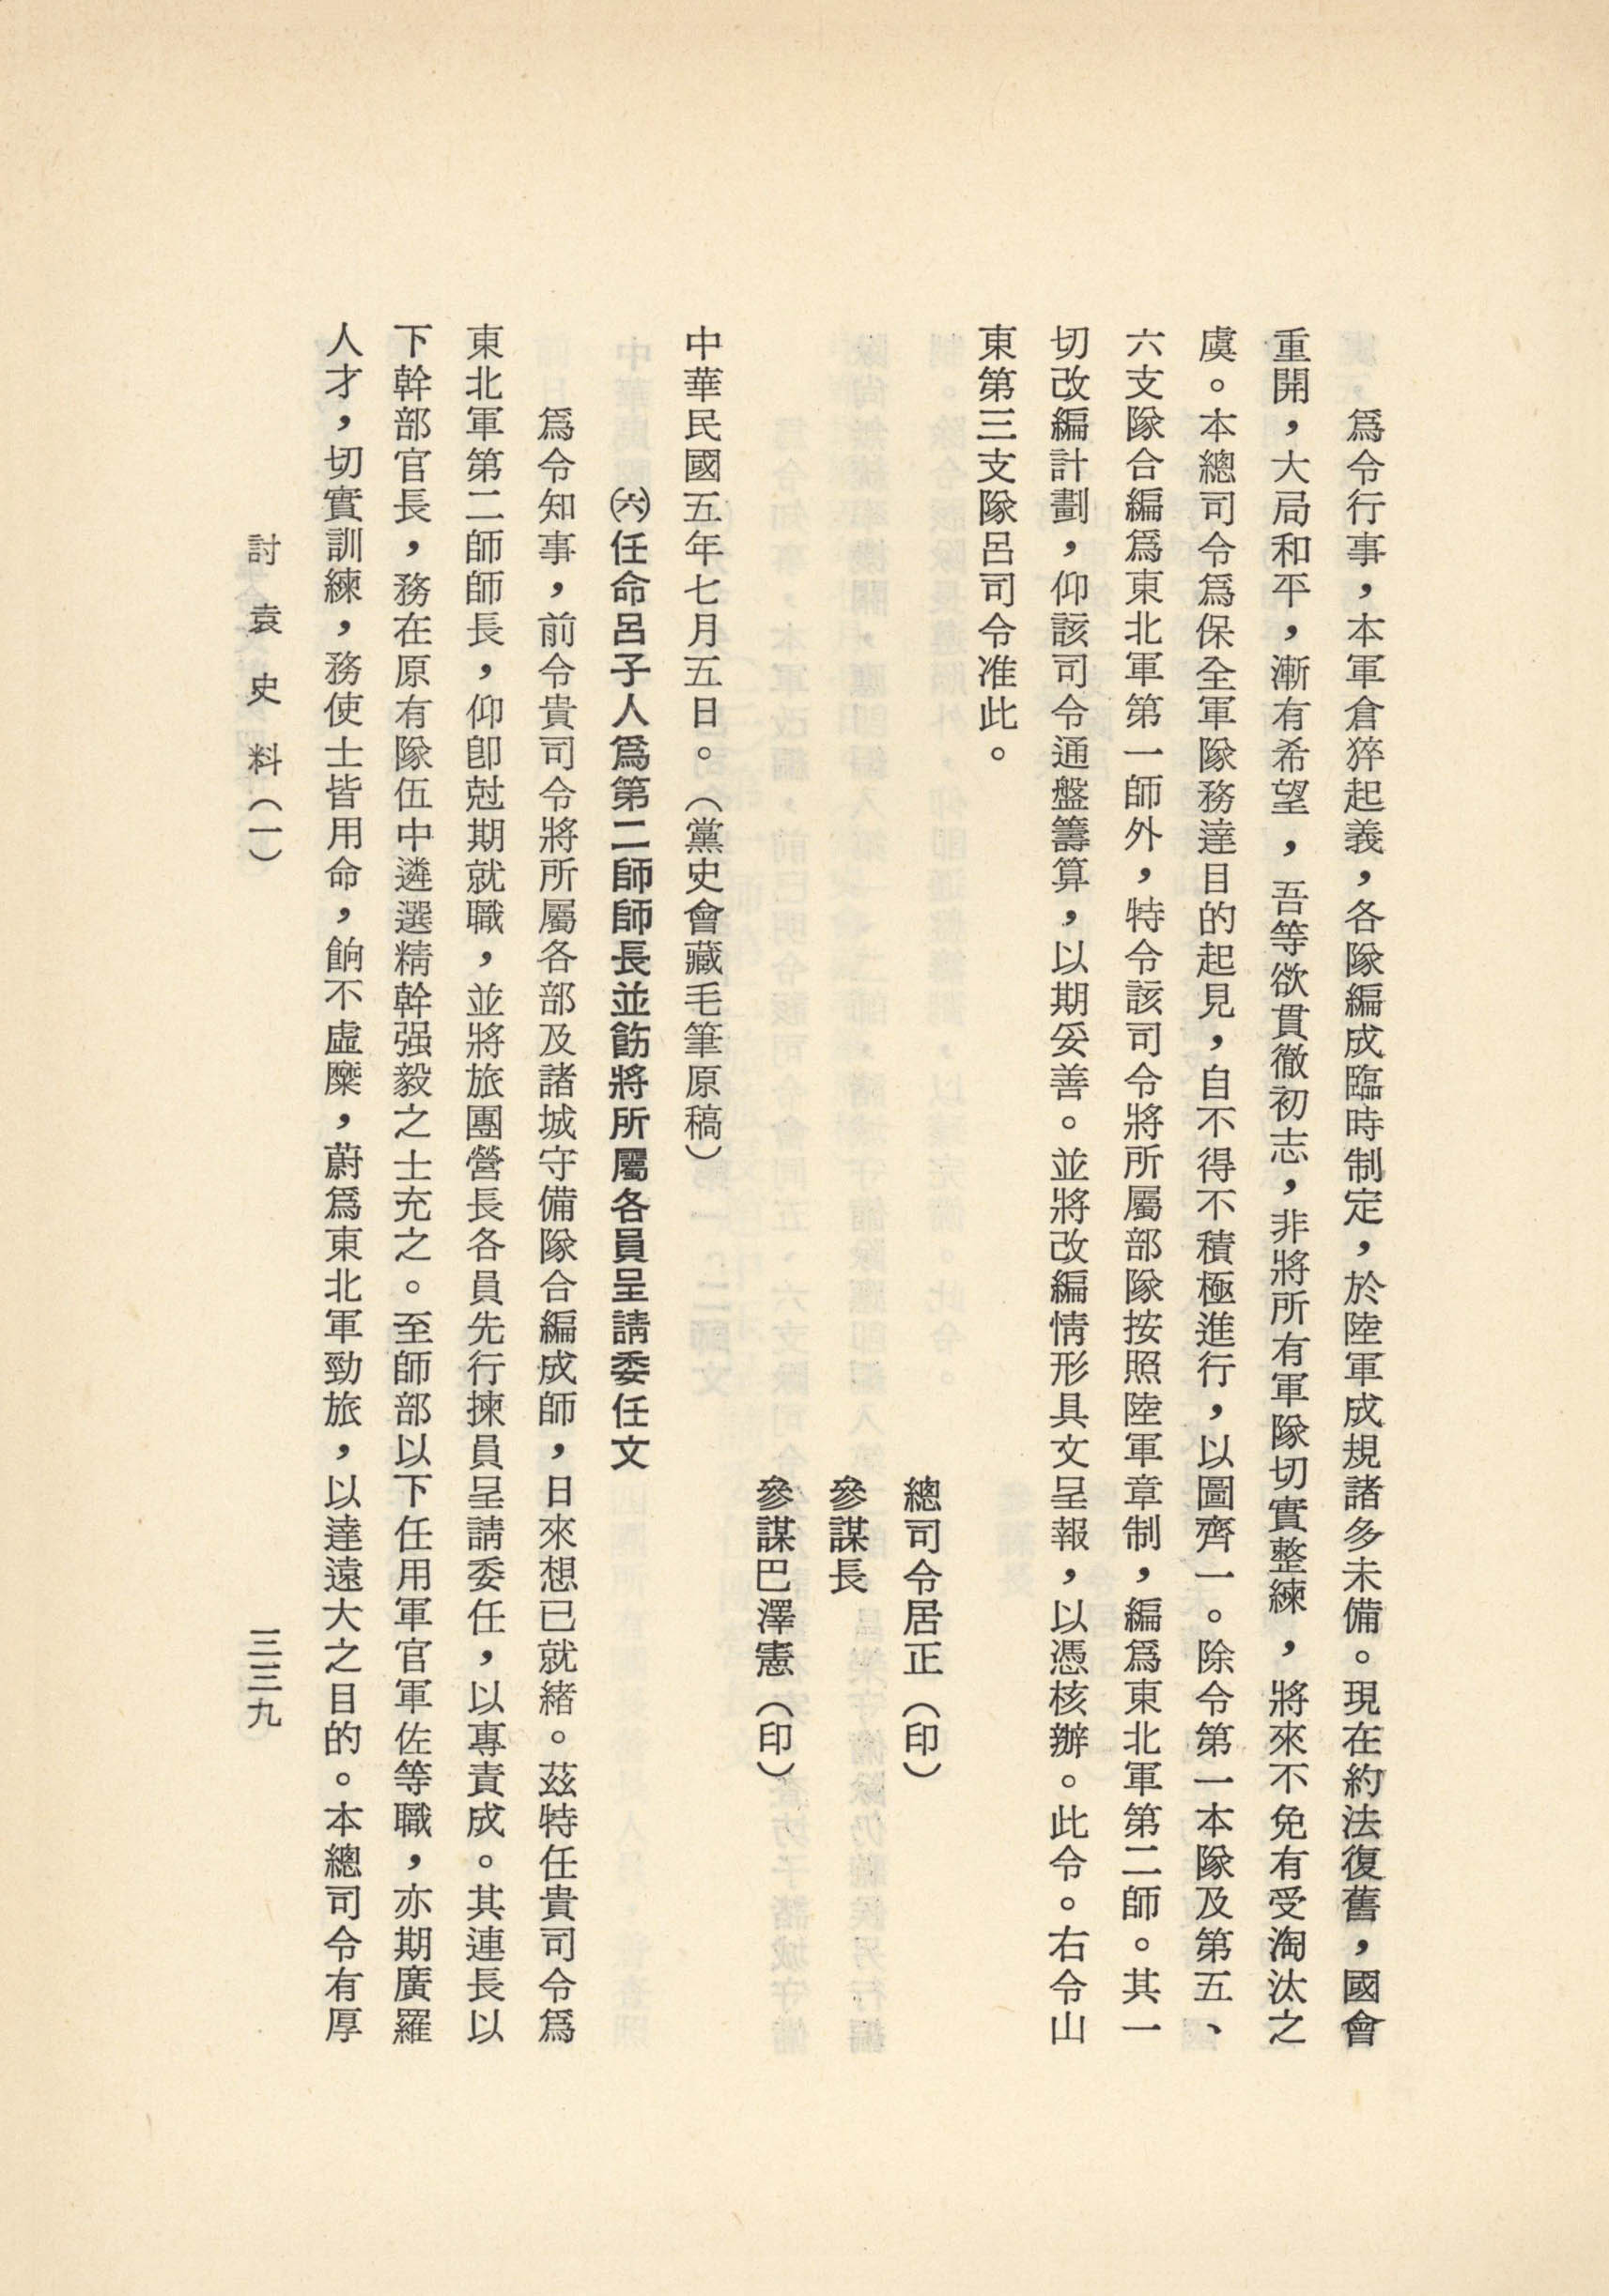 爲令行事，本軍倉猝起義，各隊編成臨時制定，於陸軍成規諸多未備。現在約法復舊，國會
重開，大局和平，漸有希望，吾等欲貫徹初志，非將所有軍隊切實整練，將來不免有受淘汰之
虞。本總司令爲保全軍隊務達目的起見，自不得不積極進行，以圖齊一。除令第一本隊及第五、
六支隊合編爲東北軍第一師外，特令該司令將所屬部隊按照陸軍章制，編爲東北軍第二師。其一
切改編計劃，仰該司令通盤籌算，以期妥善。並將改編情形具文呈報，以憑核辦。此令。右令山
東第三支隊呂司令准此。
總司令居正（印）
參謀長
參謀巴澤憲（印）
中華民國五年七月五日。（黨史會藏毛筆原稿）
㈥任命呂子人爲第二師師長並飭將所屬各員呈請委任文
爲令知事，前令貴司令將所屬各部及諸城守備隊合編成師，日來想已就緒。茲特任貴司令爲
東北軍第二師師長，仰卽尅期就職，並將旅團營長各員先行揀員呈請委任，以專責成。其連長以
下幹部官長，務在原有隊伍中遴選精幹强毅之士充之。至師部以下任用軍官軍佐等職，亦期廣羅
人才，切實訓練，務使士皆用命，餉不虛糜，蔚爲東北軍勁旅，以達遠大之目的。本總司令有厚
討袁史料（一）
三三九